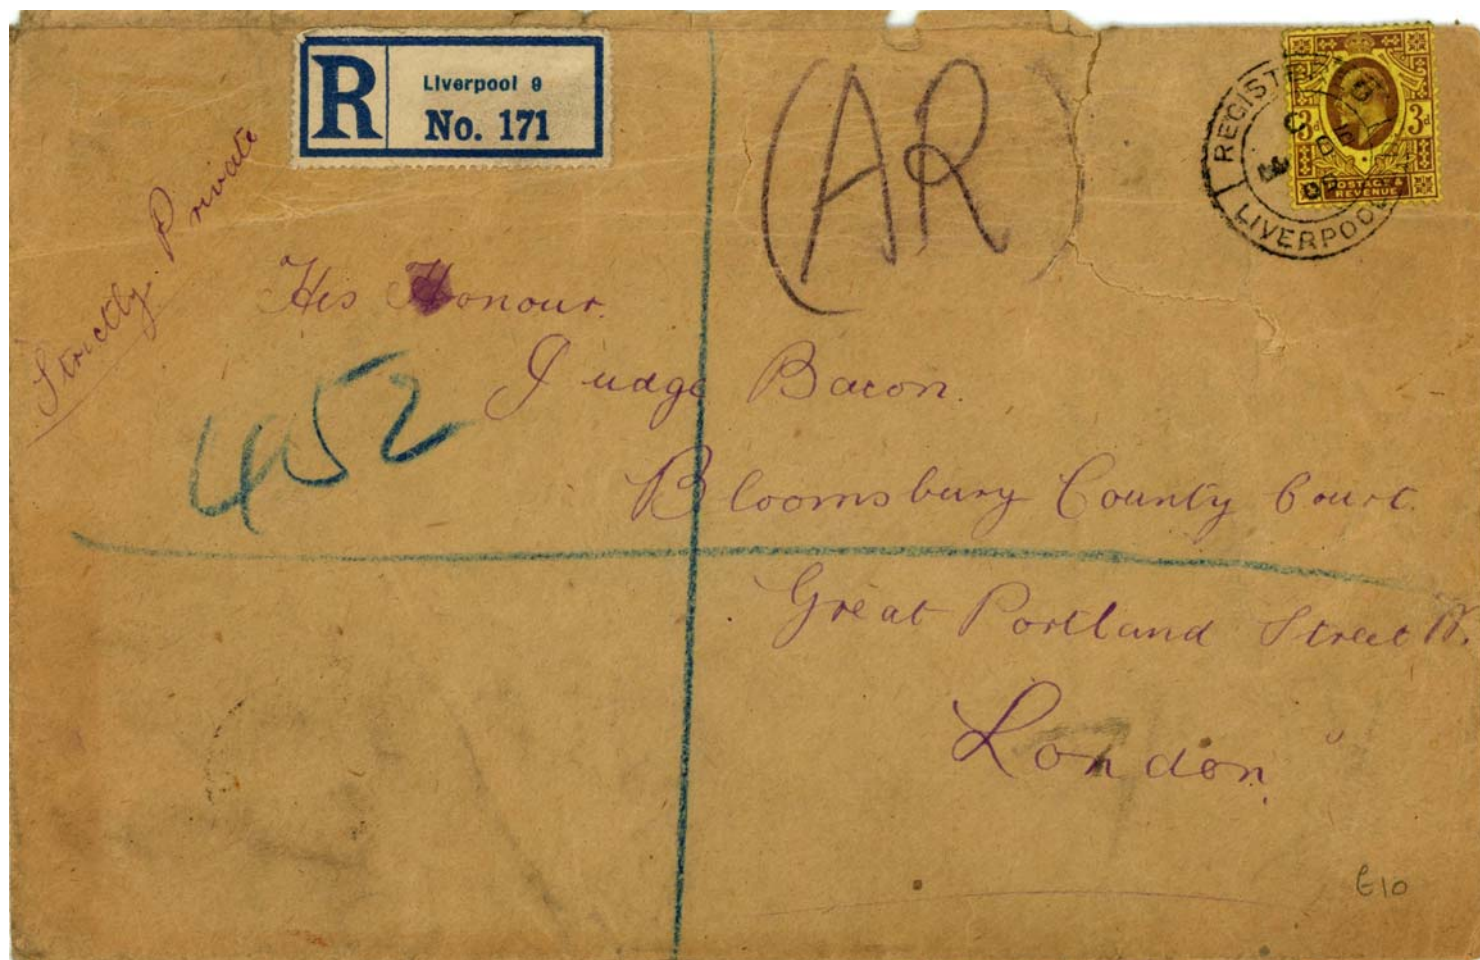 R
Liverpool 9
No. 171
(AR)
REGISTERED
LIVERPOOL
3d 3d
POSTAGE &
REVENUE
Strictly Private
His Honour.
Judge Bacon.
452
Bloomsbury County Court.
Great Portland Street W.
London
E10